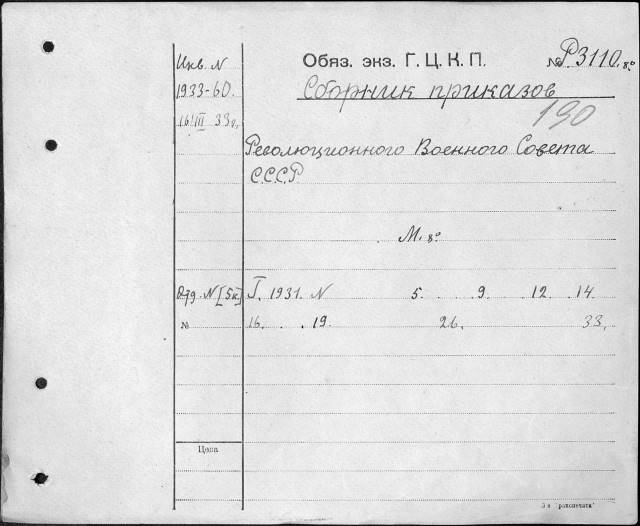 Инв. N
1933-60.
16/III 33г.
Обяз. экз. Г. Ц. К. П. № Р3110. 8°
Сборник приказов
190
Революционного Военного Совета
С.С.С.Р
М. 8°
N [5к] I. 1931. N 5. 9. 12. 14.
№ 16. 19. 26. 33.
Цена